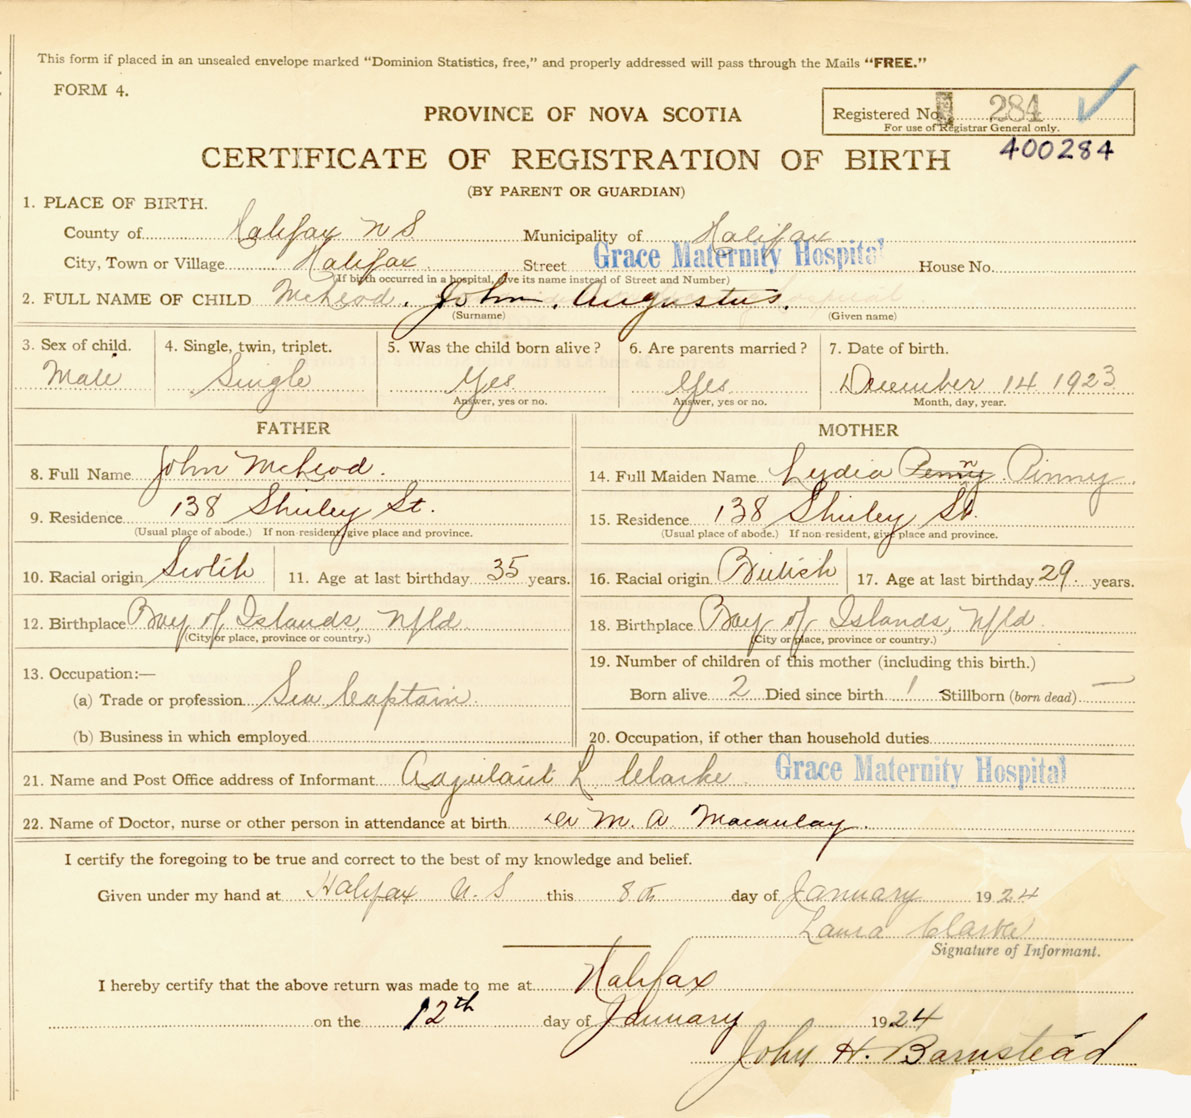 This form if placed in an unsealed envelope marked "Dominion Statistics, free," and properly addressed will pass through the Mails "FREE."
FORM 4.
PROVINCE OF NOVA SCOTIA
Registered No. 284
For use of Registrar General only.
400284
CERTIFICATE OF REGISTRATION OF BIRTH
(BY PARENT OR GUARDIAN)
1. PLACE OF BIRTH.
County of Halifax N S Municipality of Halifax
City, Town or Village Halifax Street Grace Maternity Hospital House No.
(If birth occurred in a hospital, give its name instead of Street and Number)
2. FULL NAME OF CHILD McLeod. John, Augustus.
(Surname) (Given name)
3. Sex of child. 4. Single, twin, triplet. 5. Was the child born alive? 6. Are parents married? 7. Date of birth.
Male Single Yes Yes December 14 1923
Answer, yes or no. Answer, yes or no. Month, day, year.
FATHER MOTHER
8. Full Name John McLeod. 14. Full Maiden Name Lydia Pinny.
9. Residence 138 Shirley St. 15. Residence 138 Shirley St.
(Usual place of abode.) If non-resident, give place and province. (Usual place of abode.) If non-resident, give place and province.
10. Racial origin Scotch 11. Age at last birthday 35 years. 16. Racial origin British 17. Age at last birthday 29. years.
12. Birthplace Bay of Islands, Nfld. 18. Birthplace Bay of Islands, Nfld.
(City or place, province or country.) (City or place, province or country.)
13. Occupation:— 19. Number of children of this mother (including this birth.)
(a) Trade or profession Sea Captain. Born alive 2 Died since birth 1 Stillborn (born dead) —
(b) Business in which employed 20. Occupation, if other than household duties
21. Name and Post Office address of Informant Adjutant L Clarke Grace Maternity Hospital
22. Name of Doctor, nurse or other person in attendance at birth Dr M. A Macaulay.
I certify the foregoing to be true and correct to the best of my knowledge and belief.
Given under my hand at Halifax N. S this 8th day of January 1924
Laura Clarke
Signature of Informant.
I hereby certify that the above return was made to me at Halifax
on the 12th day of January 1924
John H. Barnstead